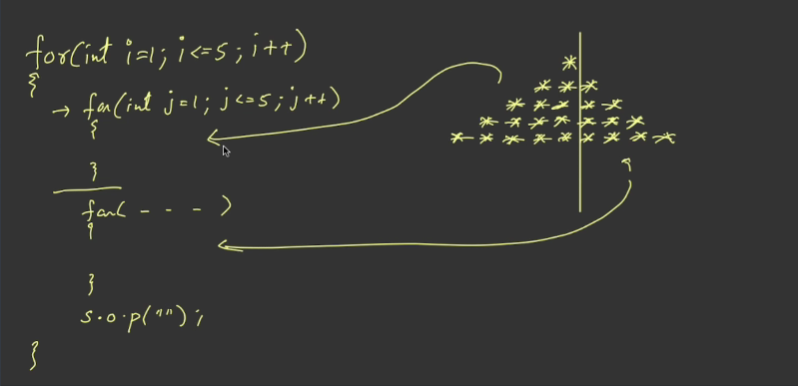 for(int i=1; i<=5; i++)
{
→ for(int j=1; j<=5; j++)
{
}
for( - - - )
{
}
s.o.p("");
}
*
* * *
* * * * *
* * * * * * *
* * * * * * * * *